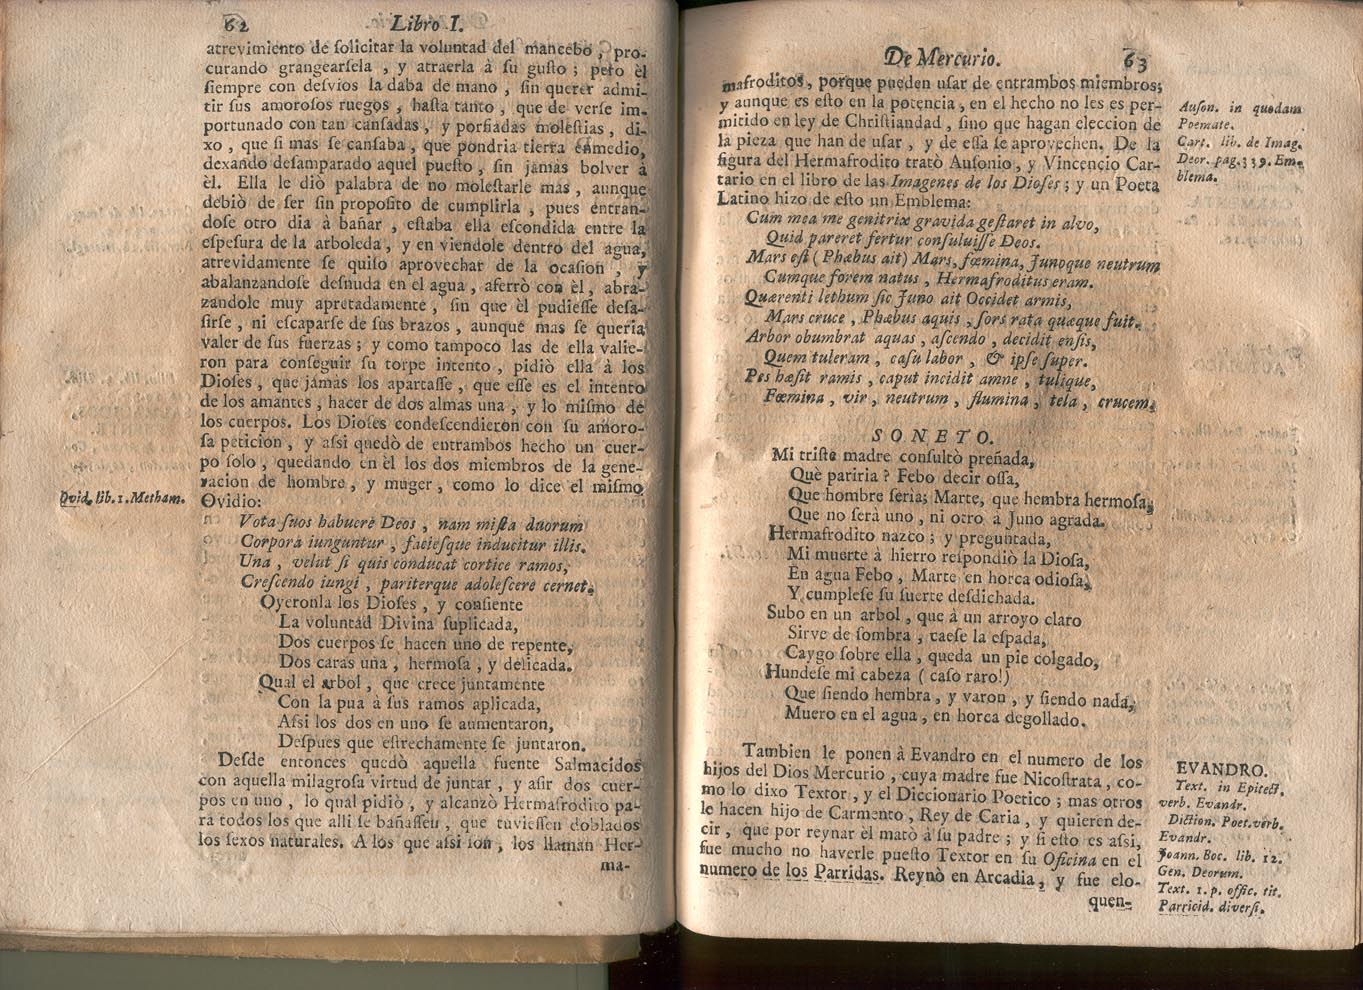 62 Libro I.
atrevimiento de ſolicitar la voluntad del mancebo, pro-
curando grangearſela, y atraerla à ſu guſto; pero èl
ſiempre con deſvios la daba de mano, ſin querer admi-
tir sus amoroſos ruegos, haſta tanto, que de verſe im-
portunado con tan canſadas, y porfiadas moleſtias, di-
xo, que ſi mas ſe canſaba, que pondria tierra enmedio,
dexando deſamparado aquel pueſto, ſin jamàs bolver à
èl. Ella le diò palabra de no moleſtarle mas, aunque
debiò de ſer ſin propoſito de cumplirla, pues entran-
doſe otro dia à bañar, eſtaba ella eſcondida entre la
eſpeſura de la arboleda, y en viendole dentro del agua,
atrevidamente ſe quiſo aprovechar de la ocaſion, y
abalanzandoſe deſnuda en el agua, aferrò con èl, abra-
zandole muy apretadamente, ſin que èl pudieſſe deſa-
ſirſe, ni eſcaparſe de ſus brazos, aunque mas ſe queria
valer de sus fuerzas; y como tampoco las de ella valie-
ron para conſeguir ſu torpe intento, pidiò ella à los
Dioſes, que jamàs los apartaſſe, que eſſe es el intento
de los amantes, hacer de dos almas una, y lo miſmo de
los cuerpos. Los Dioſes condeſcendieron con ſu amoro-
ſa peticion, y aſsi quedò de entrambos hecho un cuer-
po ſolo, quedando en èl los dos miembros de la gene-
racion de hombre, y muger, como lo dice el miſmo
Ovid. lib. 1. Metham.
Ovidio:
Vota ſuos habuere Deos, nam miſta duorum
Corpora iunguntur, facieſque inducitur illis.
Una, velut ſi quis conducat cortice ramos,
Creſcendo iungi, pariterque adoleſcere cernet.
Oyeronla los Dioſes, y conſiente
La voluntad Divina ſuplicada,
Dos cuerpos ſe hacen uno de repente,
Dos caras una, hermoſa, y delicada.
Qual el arbol, que crece juntamente
Con la pua à ſus ramos aplicada,
Aſsi los dos en uno ſe aumentaron,
Deſpues que eſtrechamente ſe juntaron.
Deſde entonces quedò aquella fuente Salmacidos
con aquella milagroſa virtud de juntar, y aſir dos cuer-
pos en uno, lo qual pidiò, y alcanzò Hermafrodito pa-
ra todos los que alli ſe bañaſſen, que tuvieſſen doblados
los ſexos naturales. A los que aſsi ſon, los llaman Her-
ma-
De Mercurio. 63
mafroditos, porque pueden uſar de entrambos miembros;
y aunque es eſto en la potencia, en el hecho no les es per-
mitido en ley de Chriſtiandad, ſino que hagan eleccion de
la pieza que han de uſar, y de eſſa ſe aprovechen. De la
figura del Hermafrodito tratò Auſonio, y Vincencio Car-
tario en el libro de las Imagenes de los Dioſes; y un Poeta
Latino hizo de eſto un Emblema:
Auſon. in quodam
Poemate.
Cart. lib. de Imag.
Deor. pag. 339. Em-
blema.
Cum mea me genitrix gravida geſtaret in alvo,
Quid pareret fertur conſuluiſſe Deos.
Mars eſt (Phæbus ait) Mars, fœmina, Junoque neutrum
Cumque forem natus, Hermafroditus eram.
Quærenti lethum ſic Juno ait Occidet armis,
Mars cruce, Phæbus aquis, ſors rata quæque fuit.
Arbor obumbrat aquas, aſcendo, decidit enſis,
Quem tuleram, caſu labor, & ipſe ſuper.
Pes hæſit ramis, caput incidit amne, tulique,
Fœmina, vir, neutrum, flumina, tela, crucem.
SONETO.
Mi triste madre conſultò preñada,
Què pariria? Febo decir oſſa,
Que hombre ſeria; Marte, que hembra hermoſa,
Que no ſerà uno, ni otro à Juno agrada.
Hermafrodito nazco; y preguntada,
Mi muerte à hierro reſpondiò la Dioſa,
En agua Febo, Marte en horca odioſa,
Y cumpleſe ſu ſuerte deſdichada.
Subo en un arbol, que à un arroyo claro
Sirve de ſombra, caeſe la eſpada,
Caygo ſobre ella, queda un pie colgado,
Hundeſe mi cabeza (caſo raro!)
Que ſiendo hembra, y varon, y ſiendo nada,
Muero en el agua, en horca degollado.
Tambien le ponen à Evandro en el numero de los
hijos del Dios Mercurio, cuya madre fue Nicoſtrata, co-
mo lo dixo Textor, y el Diccionario Poetico; mas otros
le hacen hijo de Carmento, Rey de Caria, y quieren de-
cir, que por reynar èl matò à ſu padre; y ſi eſto es aſsi,
fue mucho no haverle pueſto Textor en ſu Oficina en el
numero de los Parridas. Reynò en Arcadia, y fue elo-
quen-
EVANDRO.
Text. in Epitect.
verb. Evandr.
Diction. Poet. verb.
Evandr.
Joann. Boc. lib. 12.
Gen. Deorum.
Text. 1. p. offic. tit.
Parricid. diverſi.